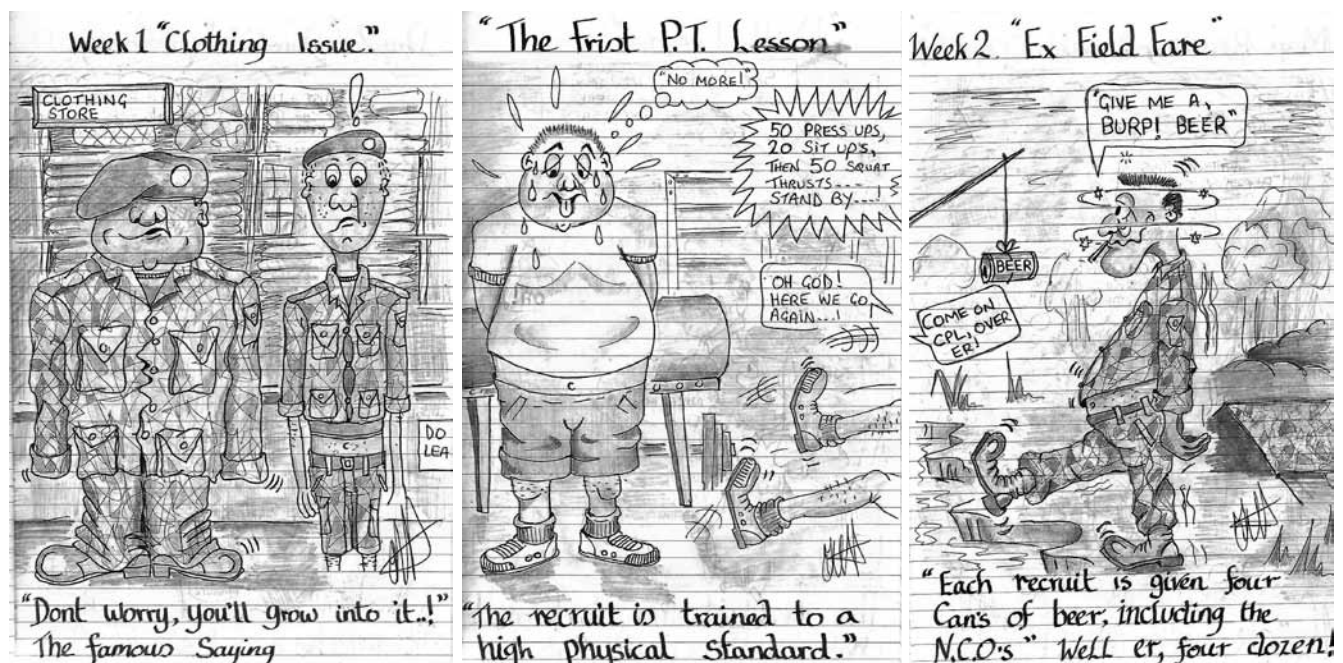 Week 1 "Clothing Issue."
CLOTHING
STORE
!
DO
LEA
"Dont worry, you'll grow into it..!"
The famous Saying
"The Frist P.T. Lesson"
"NO MORE!"
50 PRESS UPS,
20 SIT UP'S,
THEN 50 SQUAT
THRUSTS----
STAND BY----!
OH GOD!
HERE WE GO
AGAIN---!
"The recruit is trained to a
high physical standard."
Week 2. "Ex Field Fare"
"GIVE ME A,
BURP! BEER"
BEER
COME ON
CPL, OVER
ER!
"Each recruit is given four
Can's of beer, including the
N.C.O's" Well er, four dozen!